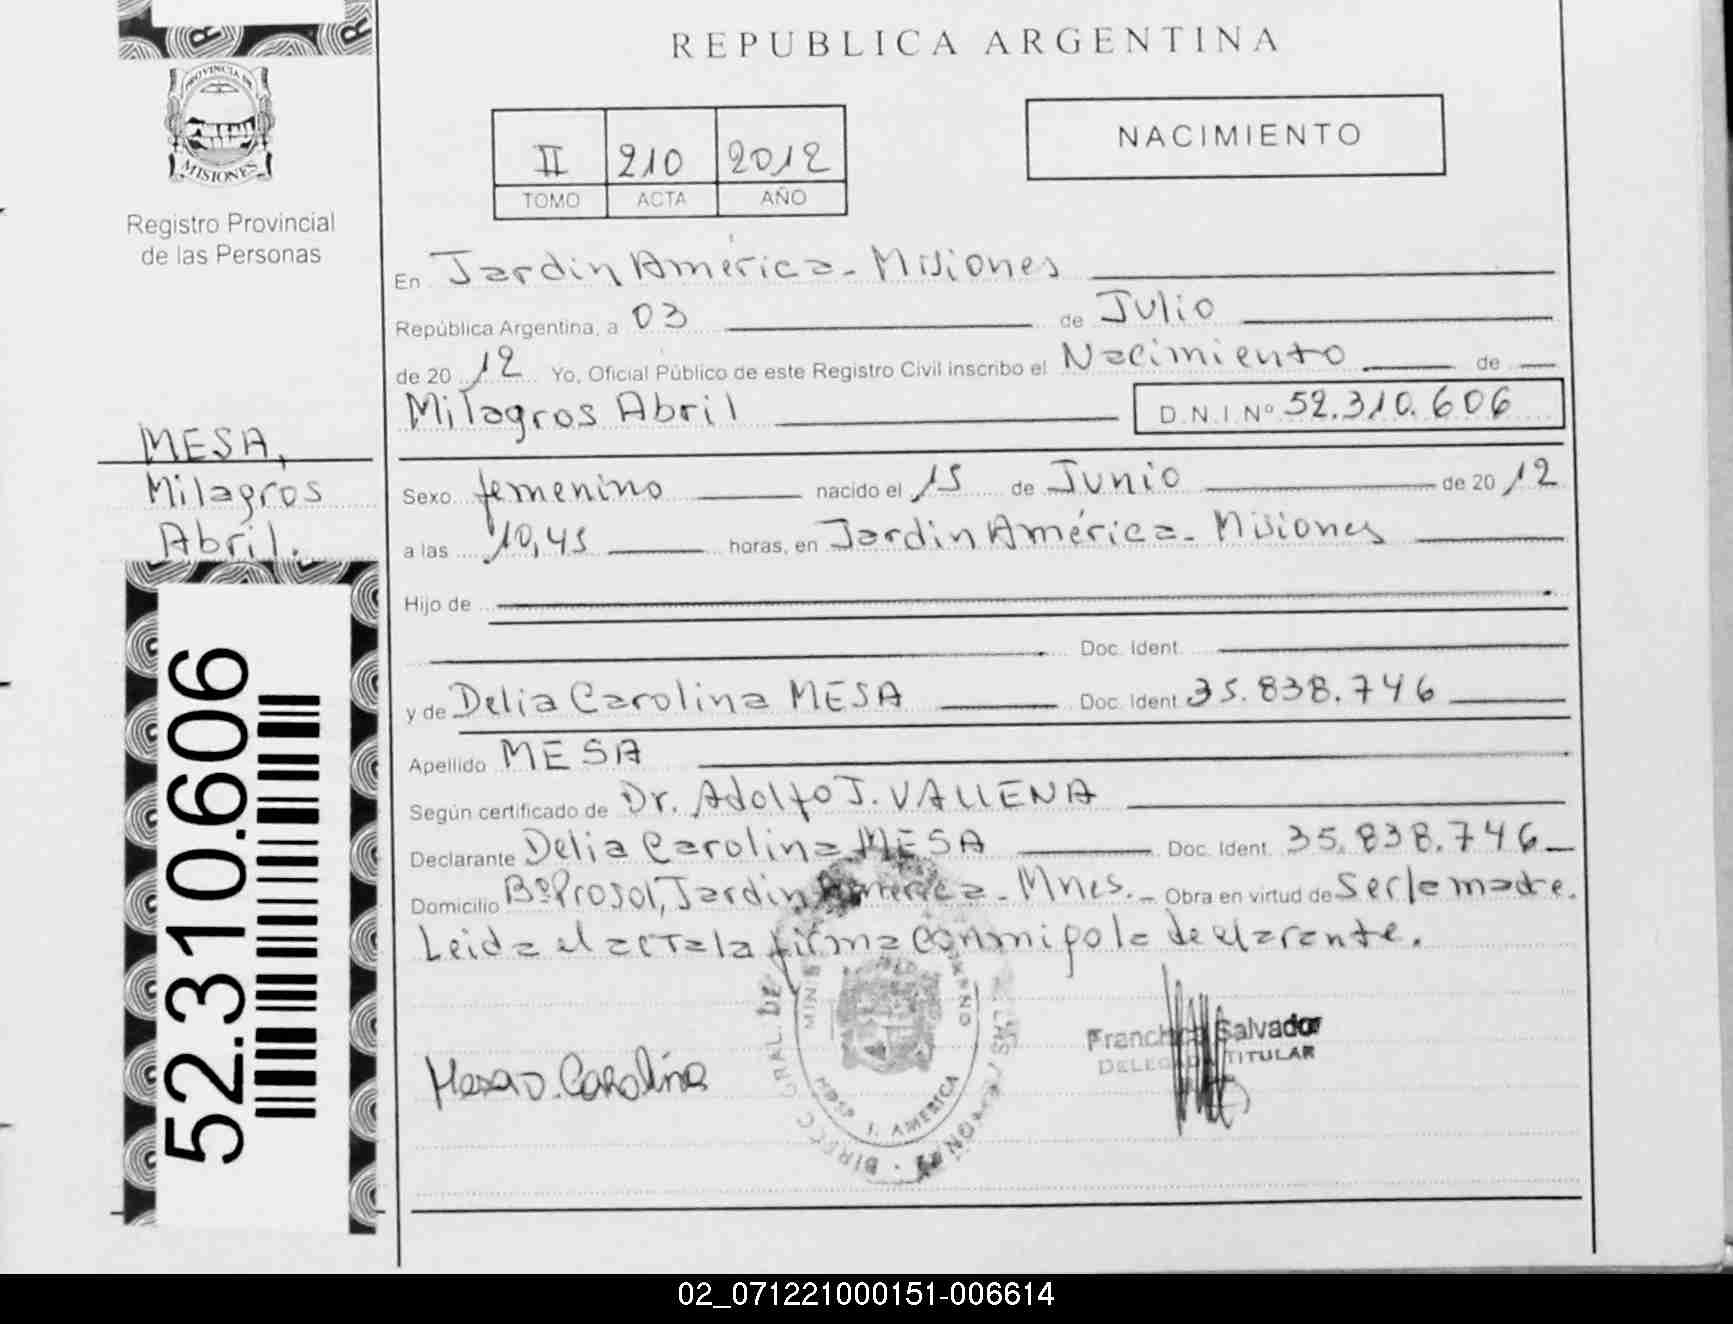 REPUBLICA ARGENTINA
PROVINCIA DE
MISIONES
Registro Provincial
de las Personas
II 210 2012
TOMO ACTA AÑO
NACIMIENTO
En Jardin América - Misiones
República Argentina, a 03 de Julio
de 20 12 Yo, Oficial Público de este Registro Civil inscribo el Nacimiento de
Milagros Abril D.N.I. Nº 52.310.606
MESA,
Milagros
Abril.
Sexo femenino nacido el 15 de Junio de 20 12
a las 10,45 horas, en Jardin América - Misiones
Hijo de
Doc. Ident.
y de Delia Carolina MESA Doc. Ident 35.838.746
Apellido MESA
Según certificado de Dr. Adolfo J. VALLENA
Declarante Delia Carolina MESA Doc. Ident. 35.838.746
Domicilio Bº Prosol, Jardin América - Mnes. - Obra en virtud de Ser la madre.
Leida el acta la firma conmigo la declarante.
52.310.606
Mesa D. Carolina
Salvador
TITULAR
J. AMERICA
02_071221000151-006614